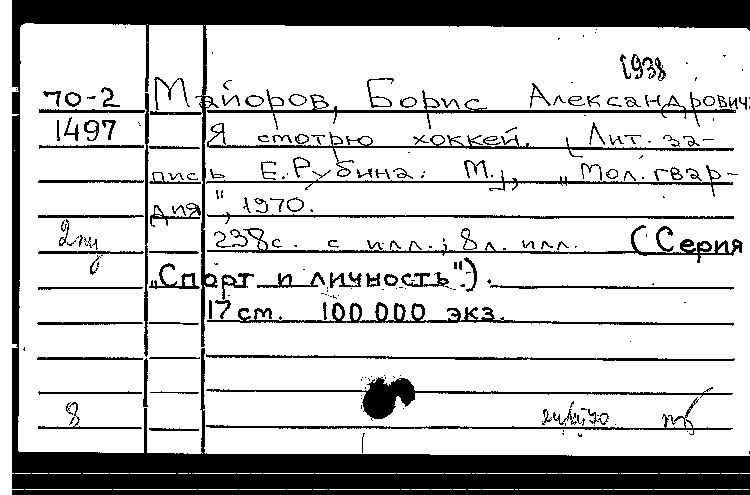 1938
70-2 Майоров, Борис Александрович
1497 Я смотрю хоккей. [Лит. за-
пись Е. Рубина. М.], „Мол. гвар-
дия", 1970.
238с. с илл.; 8л. илл. (Серия
„Спорт и личность").
17 см. 100 000 экз.
8